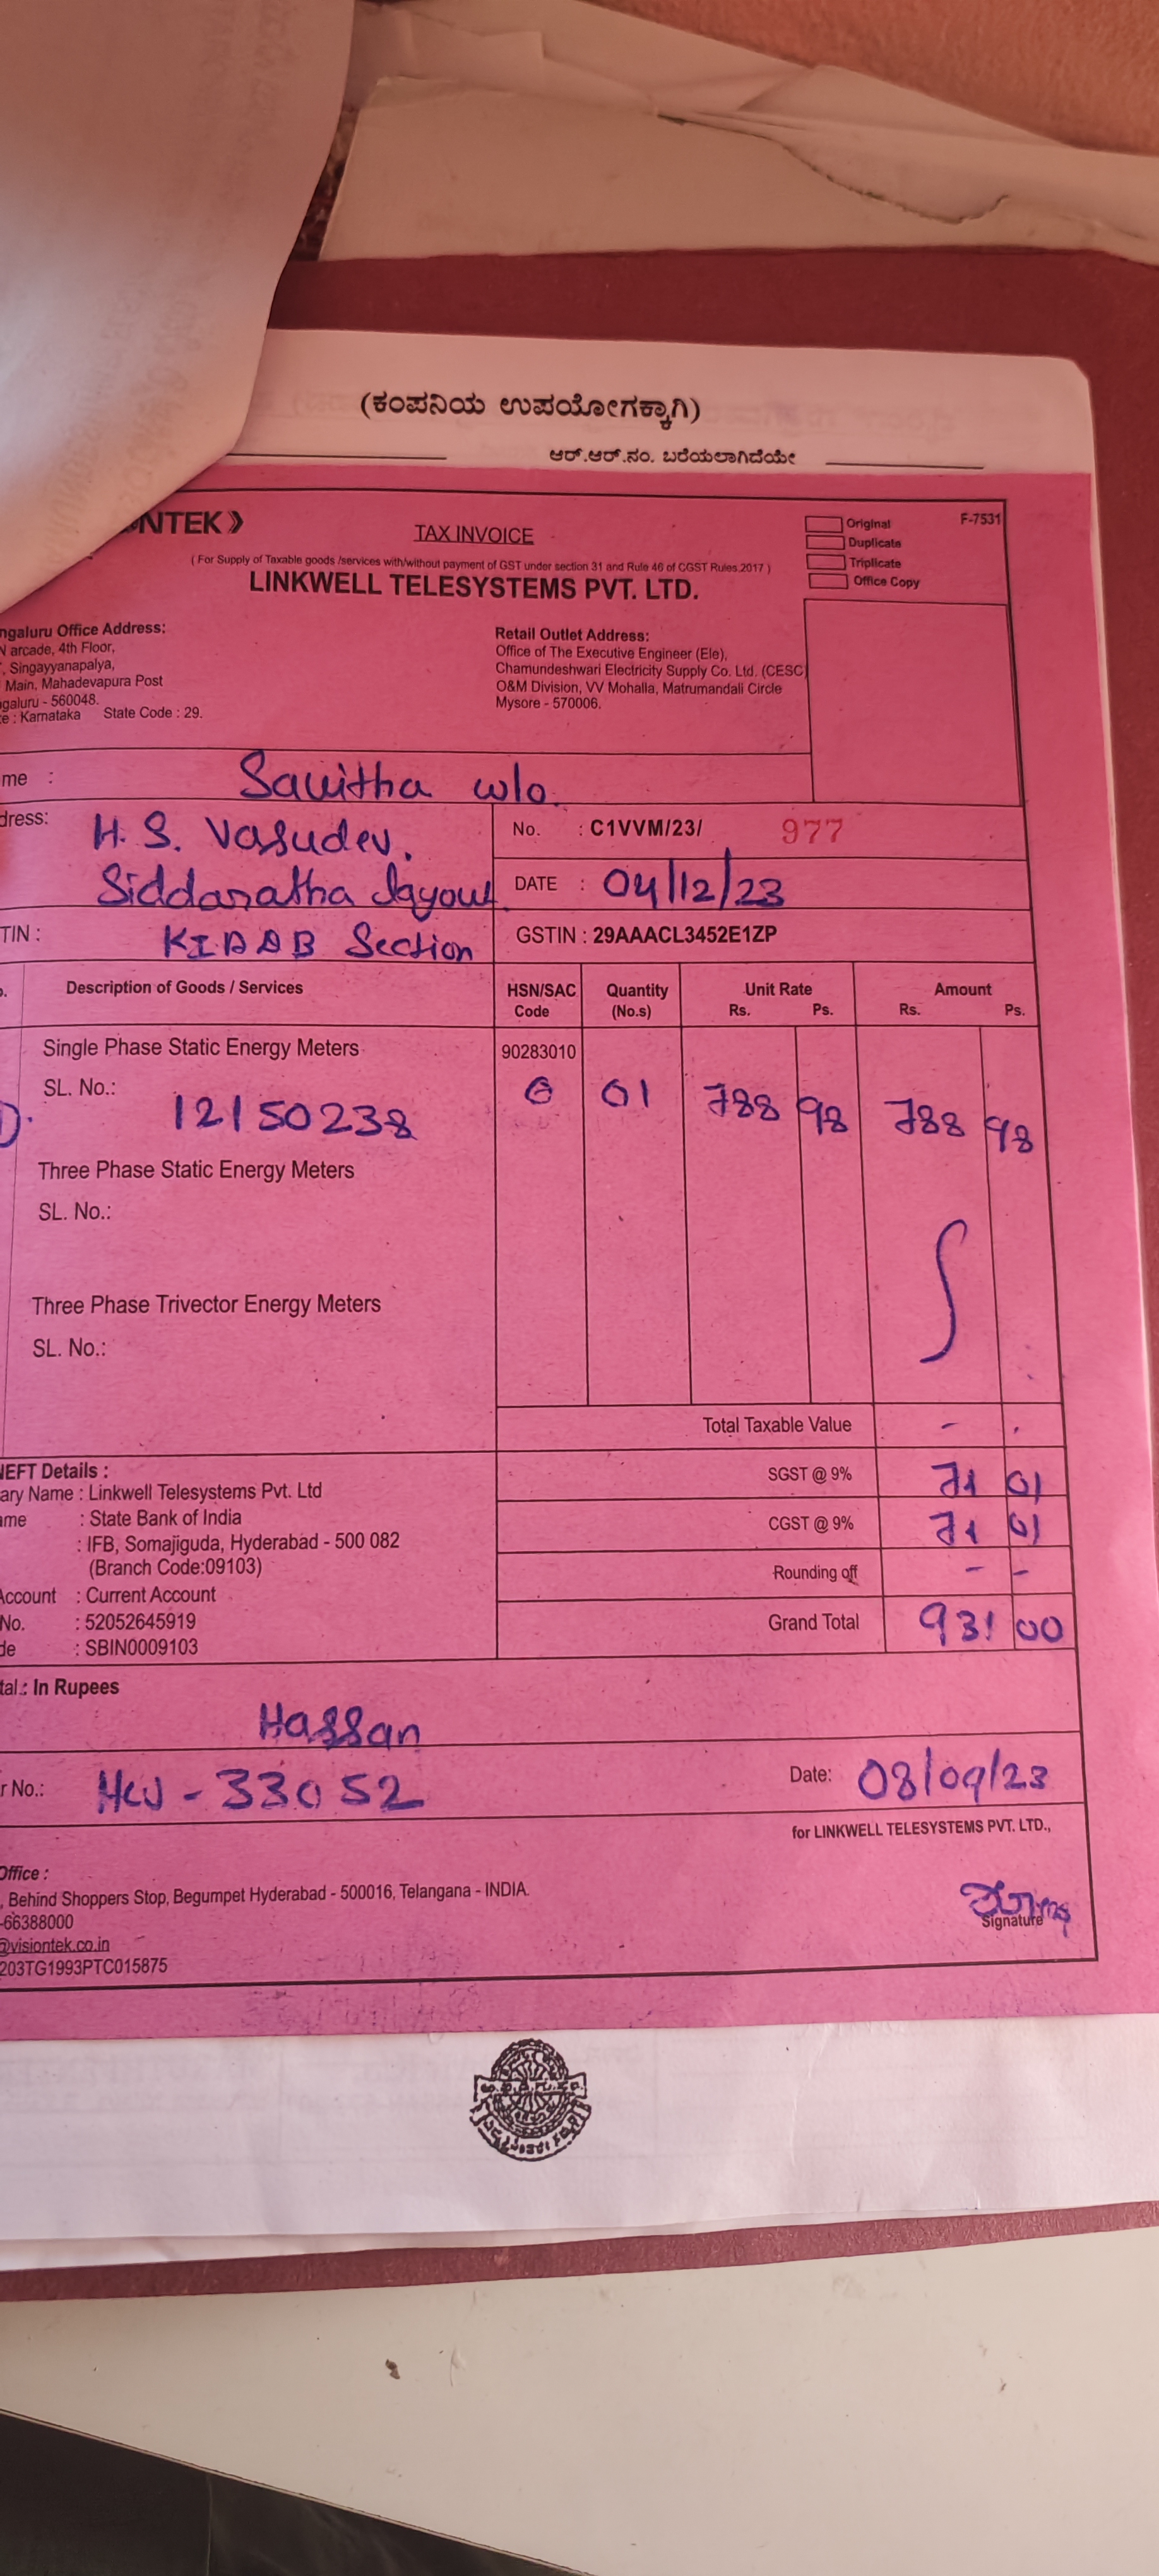 (ಕಂಪನಿಯ ಉಪಯೋಗಕ್ಕಾಗಿ)
ಆರ್.ಆರ್.ನಂ. ಬರೆಯಲಾಗಿದೆಯೇ
NTEK》
TAX INVOICE
Original
F-7531
Duplicate
Triplicate
Office Copy
( For Supply of Taxable goods /services with/without payment of GST under section 31 and Rule 46 of CGST Rules.2017 )
LINKWELL TELESYSTEMS PVT. LTD.
ngaluru Office Address:
N arcade, 4th Floor,
, Singayyanapalya,
Main, Mahadevapura Post
galuru - 560048.
te : Karnataka State Code : 29.
Retail Outlet Address:
Office of The Executive Engineer (Ele),
Chamundeshwari Electricity Supply Co. Ltd. (CESC)
O&M Division, VV Mohalla, Matrumandali Circle
Mysore - 570006.
me : Savitha w/o.
dress: H. S. Vasudev.
Siddaratha layout
No. : C1VVM/23/ 977
DATE : 04/12/23
TIN : Section
GSTIN : 29AAACL3452E1ZP
Description of Goods / Services HSN/SAC Code Quantity (No.s) Unit Rate Rs. Ps. Amount Rs. Ps.
Single Phase Static Energy Meters 90283010
SL. No.: 12150238 01 788 98 788 98
Three Phase Static Energy Meters
SL. No.:
Three Phase Trivector Energy Meters
SL. No.:
Total Taxable Value - .
SGST @ 9% 71 01
CGST @ 9% 71 01
Rounding off - -
Grand Total 931 00
NEFT Details :
ary Name : Linkwell Telesystems Pvt. Ltd
ame : State Bank of India
: IFB, Somajiguda, Hyderabad - 500 082
(Branch Code:09103)
Account : Current Account
No. : 52052645919
de : SBIN0009103
tal.: In Rupees
Hassan
r No.: HCW - 33052
Date: 08/09/23
for LINKWELL TELESYSTEMS PVT. LTD.,
Office :
, Behind Shoppers Stop, Begumpet Hyderabad - 500016, Telangana - INDIA.
-66388000
@visiontek.co.in
203TG1993PTC015875
Signature